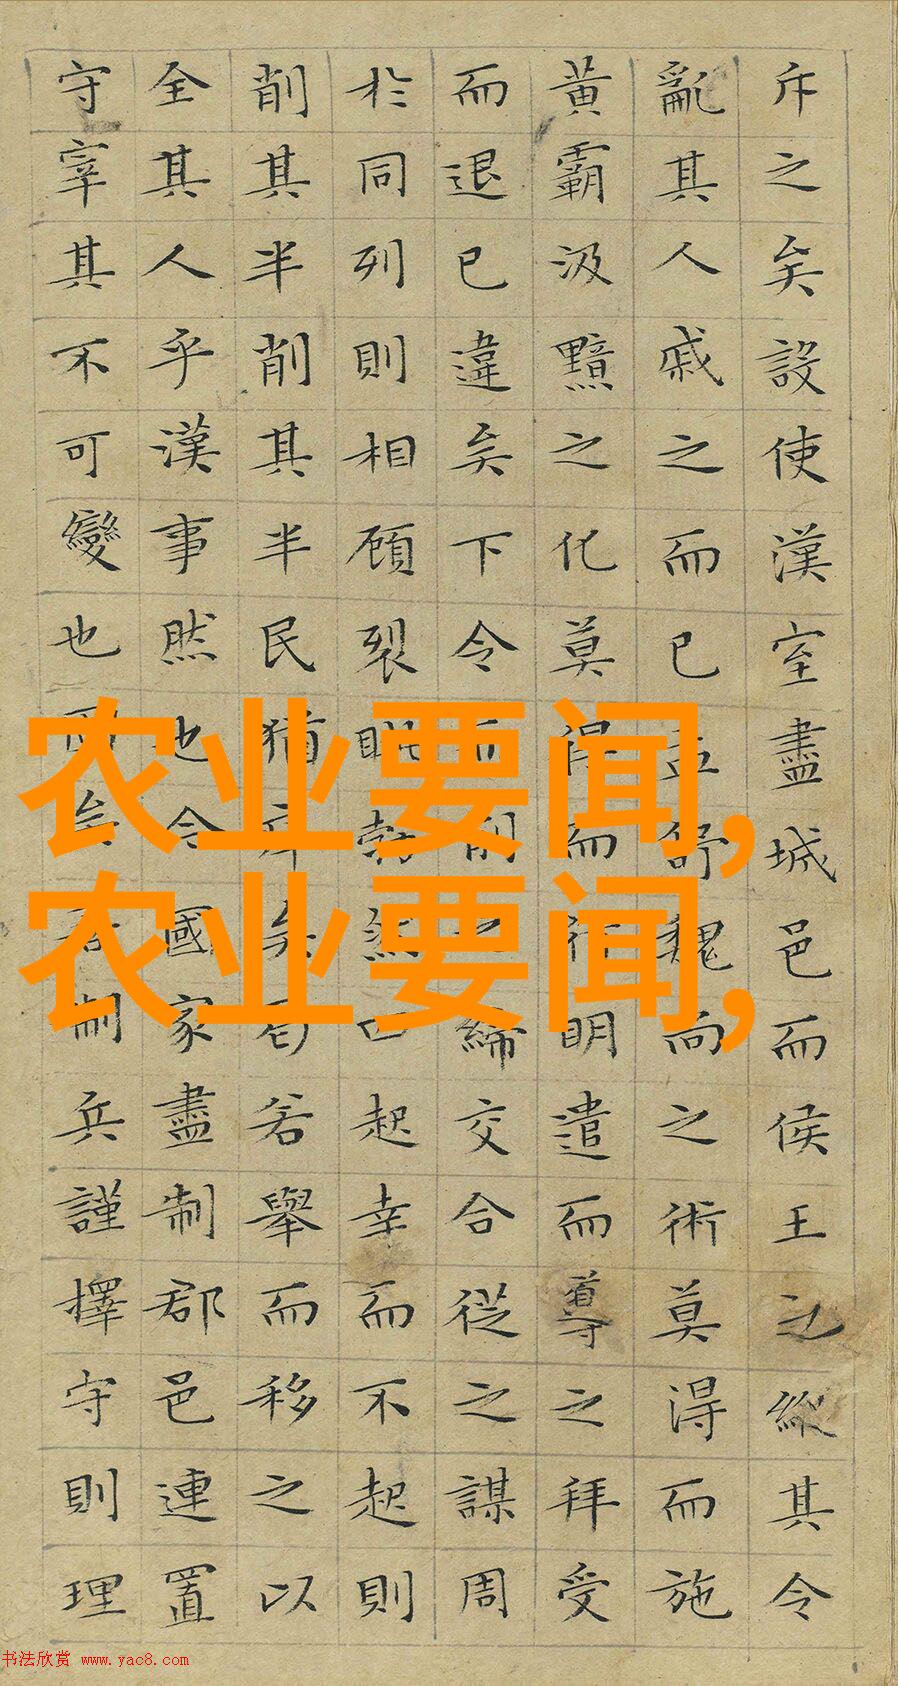 斥之矣設使漢室盡城邑而侯王之縱其令
亂其人戚之而已孟舒魏尚之術莫得而施
黃霸汲黯之化莫得而行明遣而導之拜受
而退已違矣下令而削之締交合從之謀周
於同列則相顧裂眦勃然起幸而不起則
削其半削其半民猶瘁矣曷若舉而移之以
全其人乎漢事然也今國家盡制郡邑連置
守宰其不可變也固矣善制兵謹擇守則理
农业要闻,
农业要闻,
书法欣赏 www.yac8.com